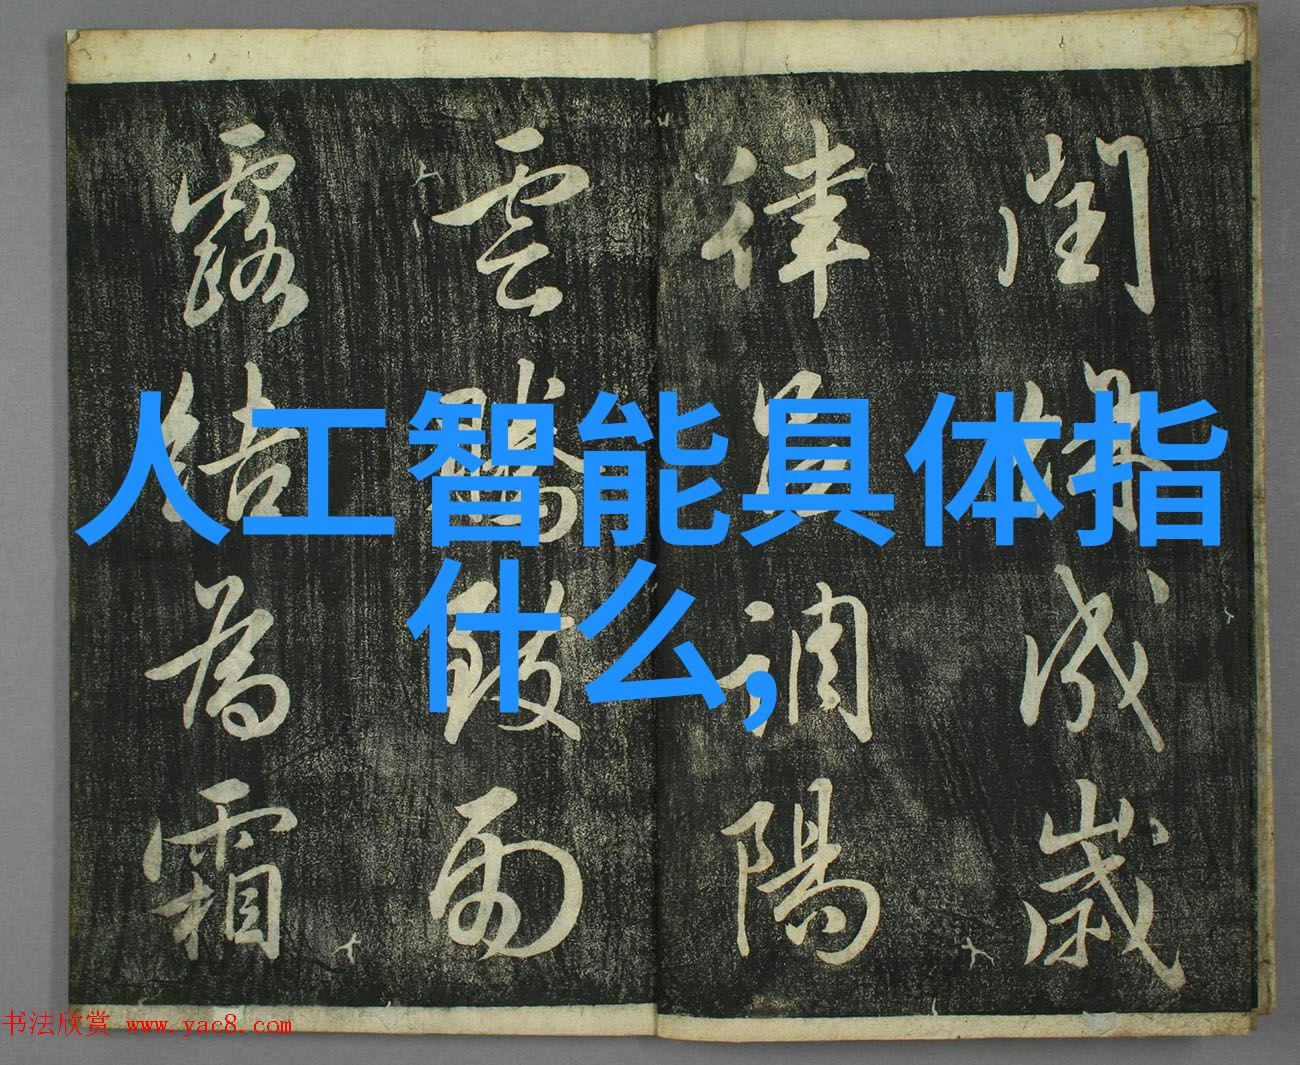 人工智能具体指
什么,
閏餘成歲
律呂調陽
雲騰致雨
露結為霜
书法欣赏 www.yac8.com